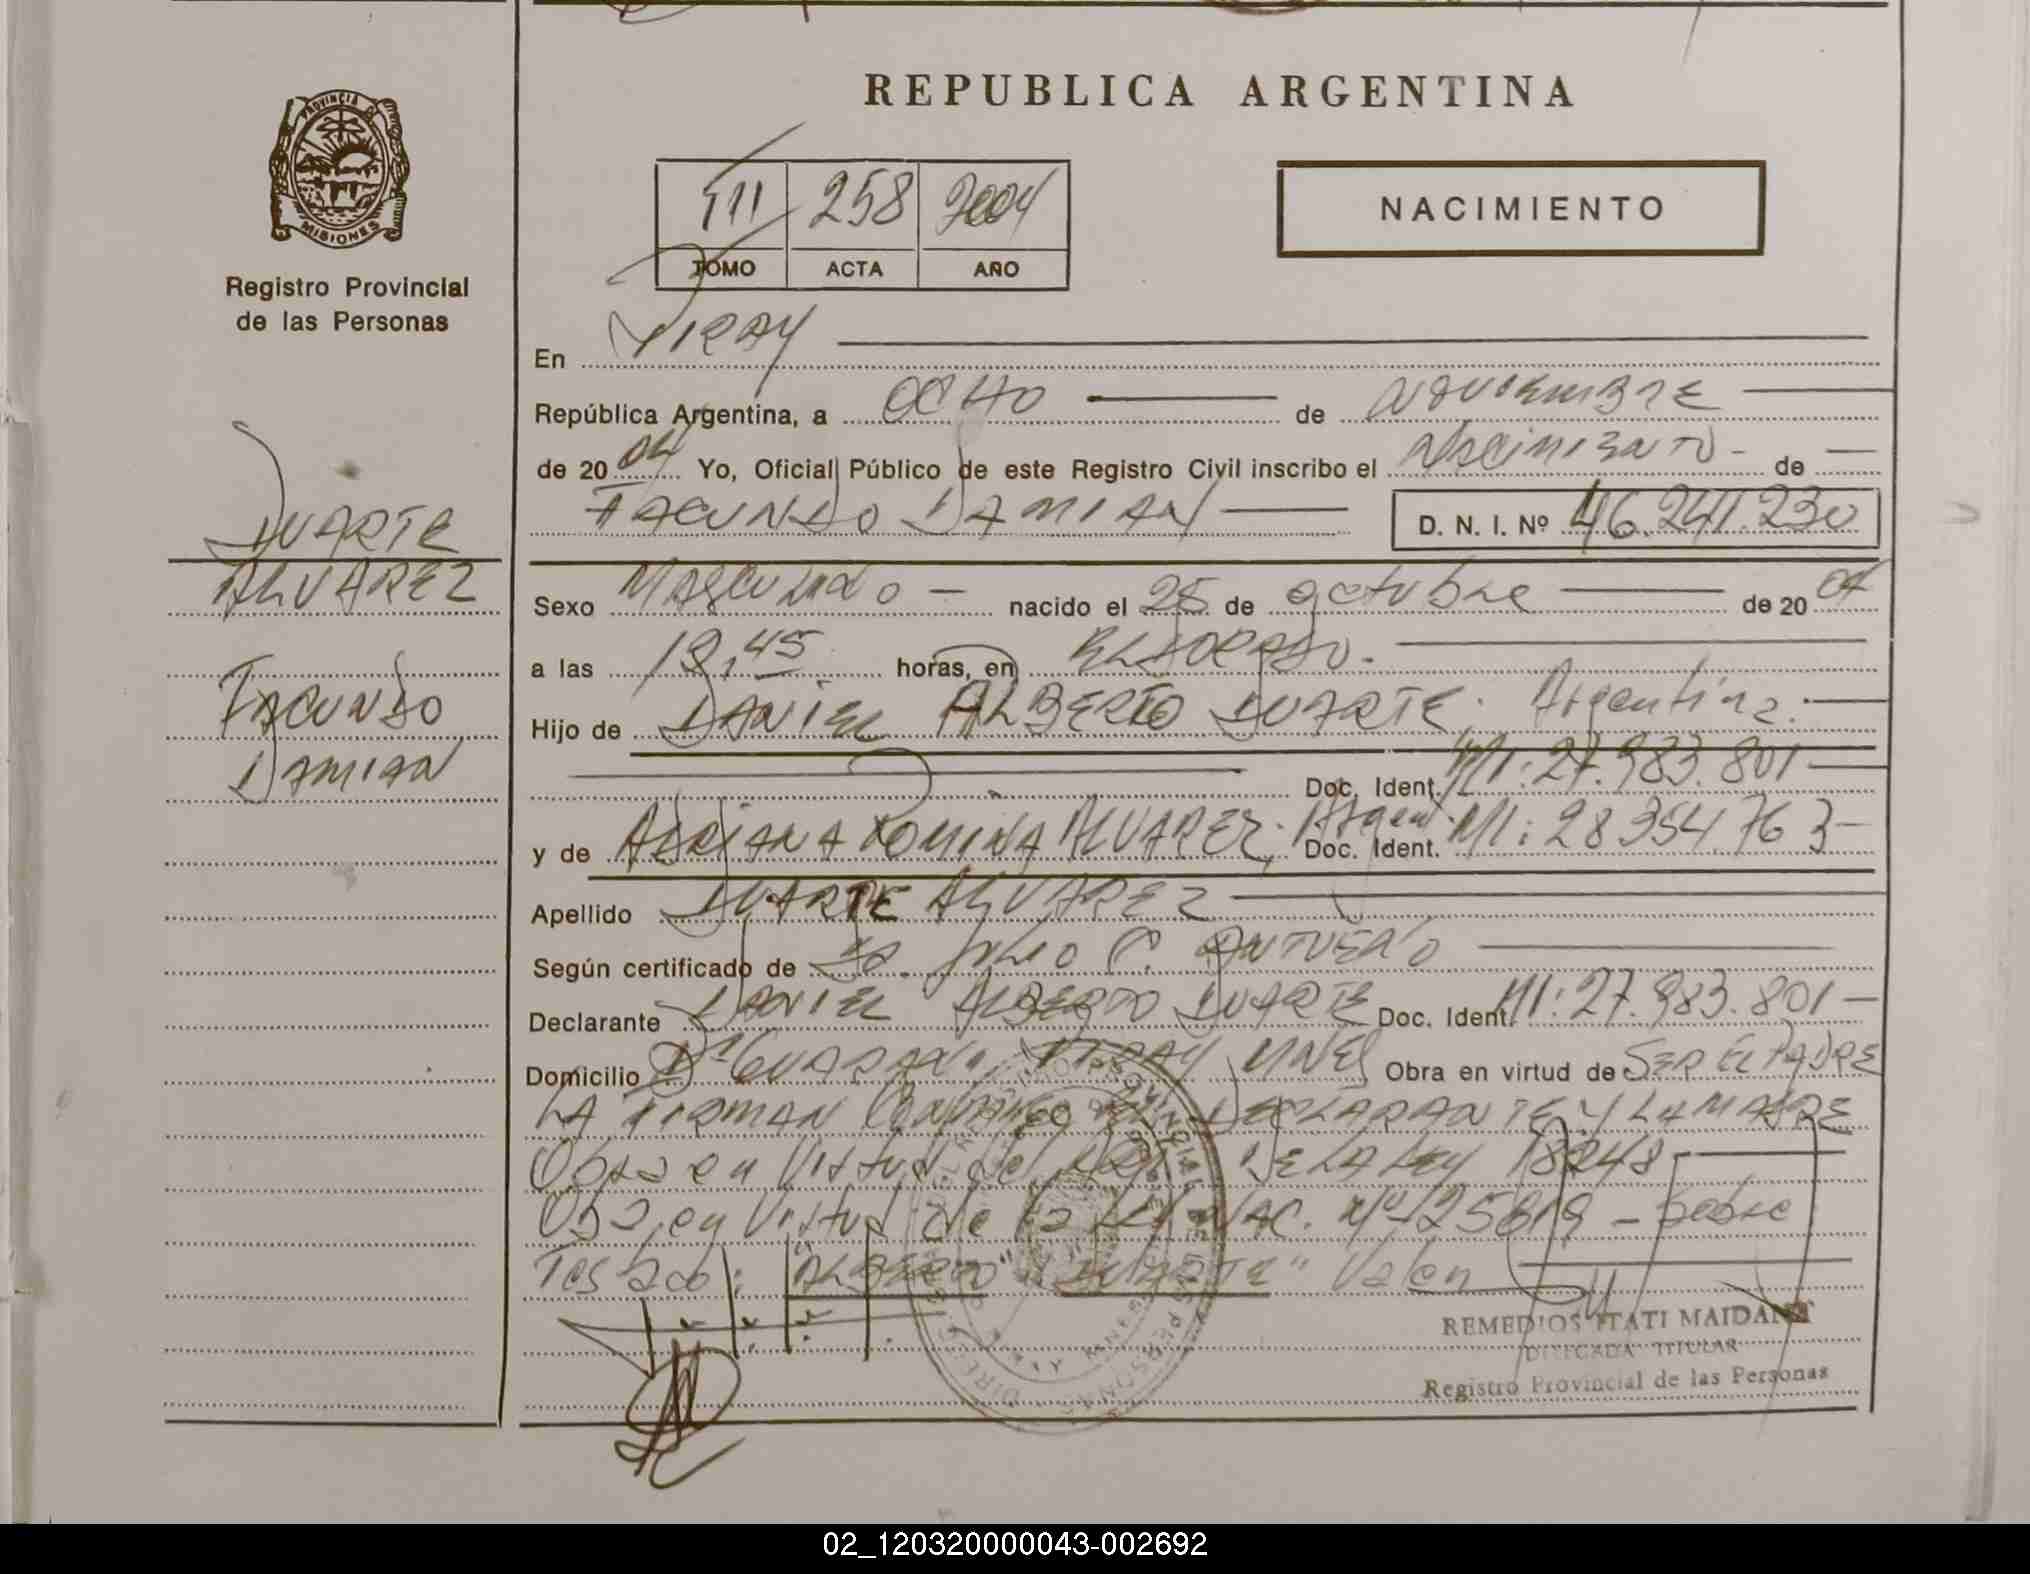 REPUBLICA ARGENTINA
PROVINCIA DE
MISIONES
Registro Provincial
de las Personas
III 258 2004
TOMO ACTA AÑO
NACIMIENTO
En PIRAY
República Argentina, a OCHO de noviembre
de 2004 Yo, Oficial Público de este Registro Civil inscribo el nacimiento - de
FACUNDO DAMIAN D. N. I. Nº 46.241.230
DUARTE
ALVAREZ
FACUNDO
DAMIAN
Sexo Masculino - nacido el 25 de octubre de 2004
a las 19,45 horas, en ELDORADO.
Hijo de DANIEL ALBERTO DUARTE. Argentina.
Doc. Ident. MI: 27.983.801
y de ADRIANA ROMINA ALVAREZ. Argen. Doc. Ident. MI: 28354.763
Apellido DUARTE ALVAREZ
Según certificado de JULIO C.
Declarante DANIEL ALBERTO DUARTE Doc. Ident. MI: 27.983.801
Domicilio Bº GUARANI, PIRAY MNES Obra en virtud de SER EL PADRE
LA FIRMAN CONMIGO EL DECLARANTE Y LA MADRE
Obra en Virtud del DE LA LEY 18248
Obra en Virtud de la LEY NAC. Nº 25819 - Sobre
Testado: "ALBERTO" "DUARTE" Valen
REMEDIOS ITATI MAIDANA
DELEGADA TITULAR
Registro Provincial de las Personas
02_120320000043-002692